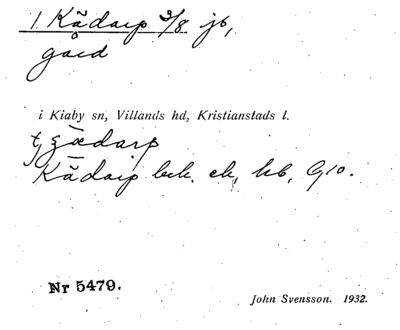 1. Kādarp 3/8 jb,
gård
i Kiaby sn, Villands hd, Kristianstads l.
Kādarp bek. ek, kb, G10.
Nr 5479.
John Svensson. 1932.